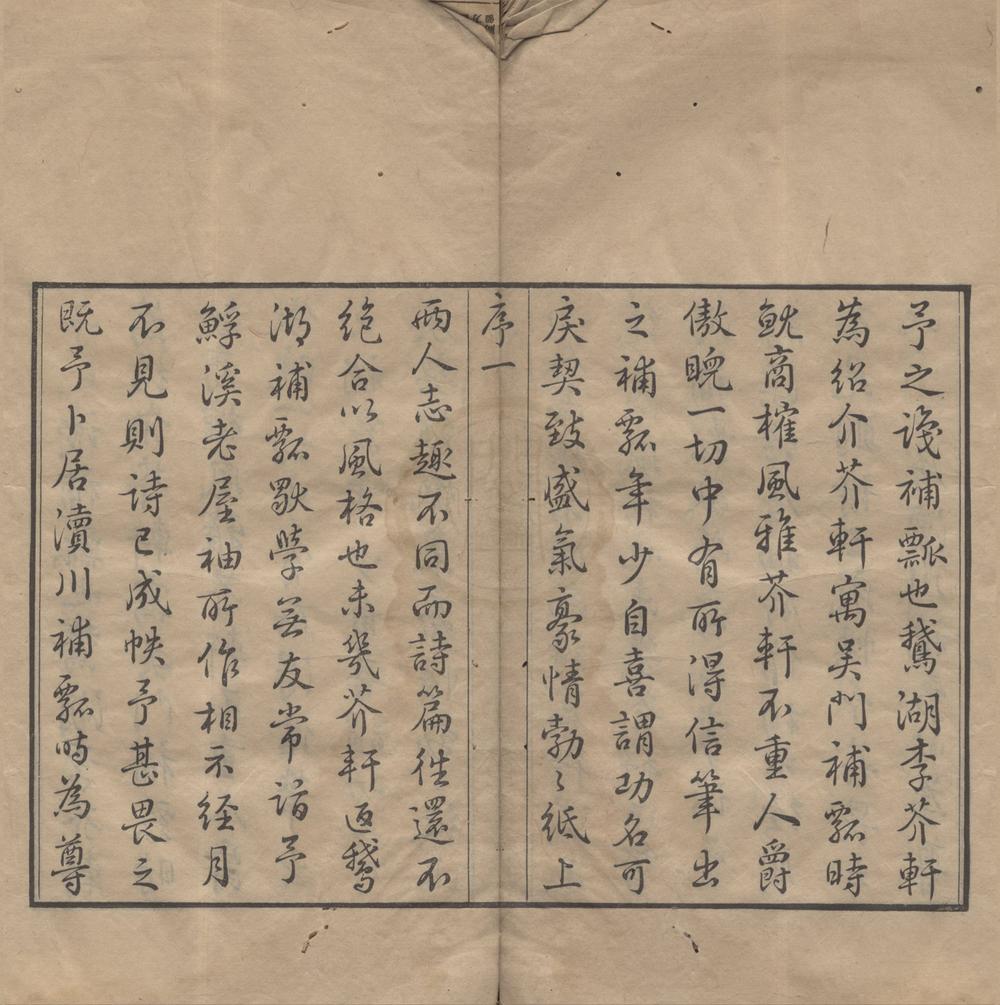 予之識補瓢也鵞湖李芥軒
為紹介芥軒寓吴門補瓢時
就商榷風雅芥軒不重人爵
傲睨一切中有所得信筆出
之補瓢年少自喜謂功名可
戾契致盛氣豪情勃〻紙上
序一
兩人志趣不同而詩篇徃還不
絶合以風格也未幾芥軒返鵞
湖補瓢歇學無友常詣予
鱘溪老屋袖所作相示経月
不見則詩已成帙予甚畏之
既予卜居瀆川補瓢時為尊